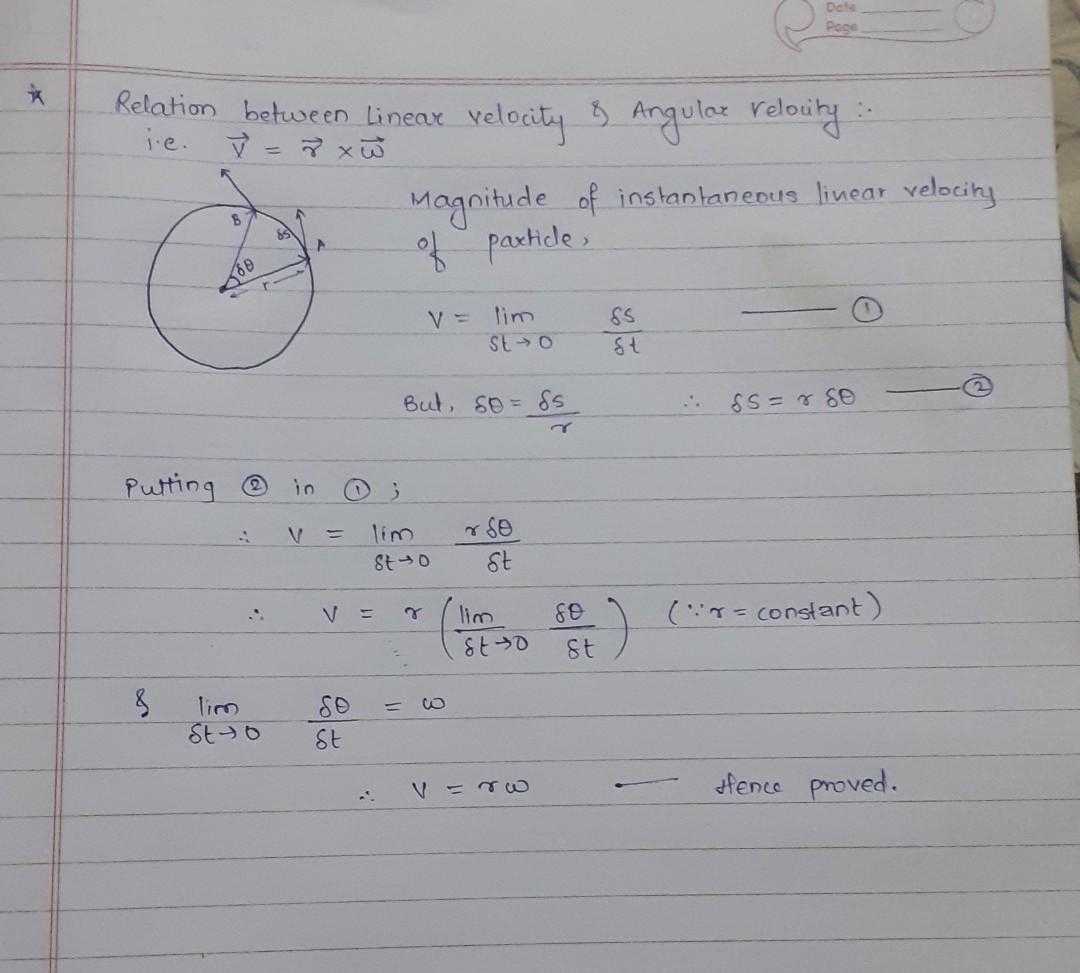 Date
Page
★ Relation between Linear velocity & Angular velocity :-
i.e. v⃗ = r⃗ × ω⃗
B
δs
A
δθ
r
Magnitude of instantaneous linear velocity
of particle,
v = lim δs ——— ①
δt→0 δt
But, δθ = δs ∴ δs = r δθ ——— ②
r
Putting ② in ① ;
∴ v = lim r δθ
δt→0 δt
∴ v = r ( lim δθ ) (∵ r = constant)
δt→0 δt
& lim δθ = ω
δt→0 δt
∴ v = rω — Hence proved.